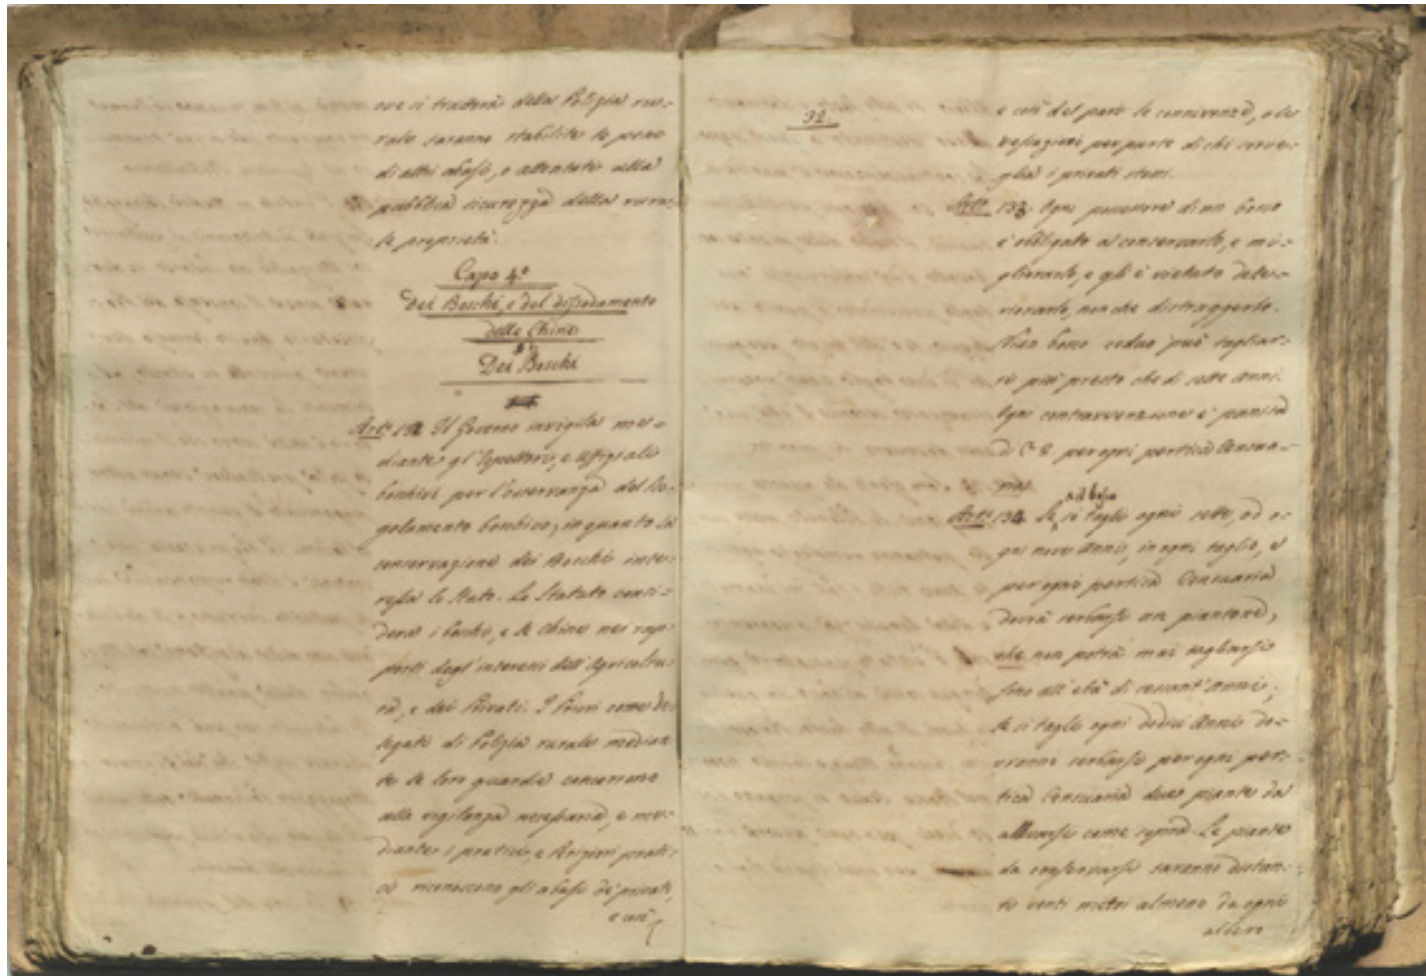 ove si tratterà della Polizia ru-
rale saranno stabilite le pene
di altri abusi, e attentati alla
pubblica sicurezza della rura-
le proprietà.
Capo 4.º
Dei Boschi, e del dissodamento
delle Chine
Dei Boschi
Art.º Il Governo invigila me-
diante gl'Ispettori, e Uffiziali
boschivi per l'osservanza del Re-
golamento boschivo; in quanto la
conservazione dei Boschi inte-
ressa lo Stato. Lo Statuto consi-
dera i boschi, e le Chine nei rap-
porti degl'interessi dell'Agricoltu-
ra, e dei Privati. I Priori come de-
legati di Polizia rurale median
te le loro guardie concorrono
alla vigilanza necessaria, e me-
diante i pratici, e
riconoscono gli abusi de' privati,
e così
32.
e così del pari le connivenze, o le
vessazioni per parte di chi sorve-
glia i privati stessi.
Art.º 133. Ogni possessore di un bosco
è obbligato a conservarlo, e mi-
gliorarlo, e gli è vietato dete-
riorarlo, non che distruggerlo.
Niun bosco ceduo può tagliar-
si più presto che di sette anni.
Ogni contravvenzione è punita
per ogni pertica Censua-
ria.
Art.º Se si taglia ogni sette, od o-
gni nove Anni, in ogni taglio, e
per ogni pertica Censuaria
dovrà serbarsi un piantone,
che non potrà mai tagliarsi
sino all'età di sessant'Anni;
Se si taglia ogni dodici Anni do-
vranno serbarsi per ogni per-
tica Censuaria due piante da
allevarsi come sopra. Le piante
da conservarsi saranno distan-
ti venti metri almeno da ogni
albero